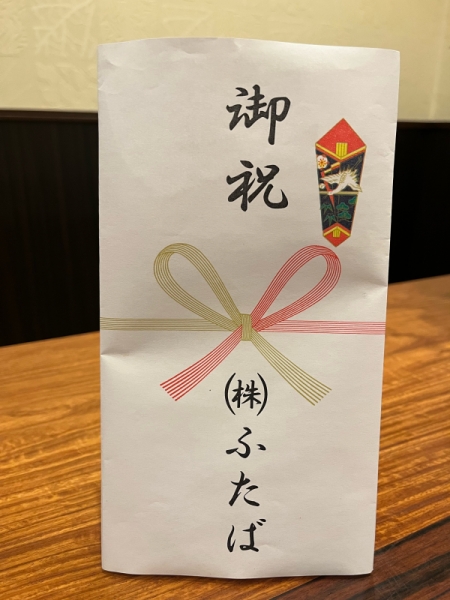 御祝
㈱ふたば